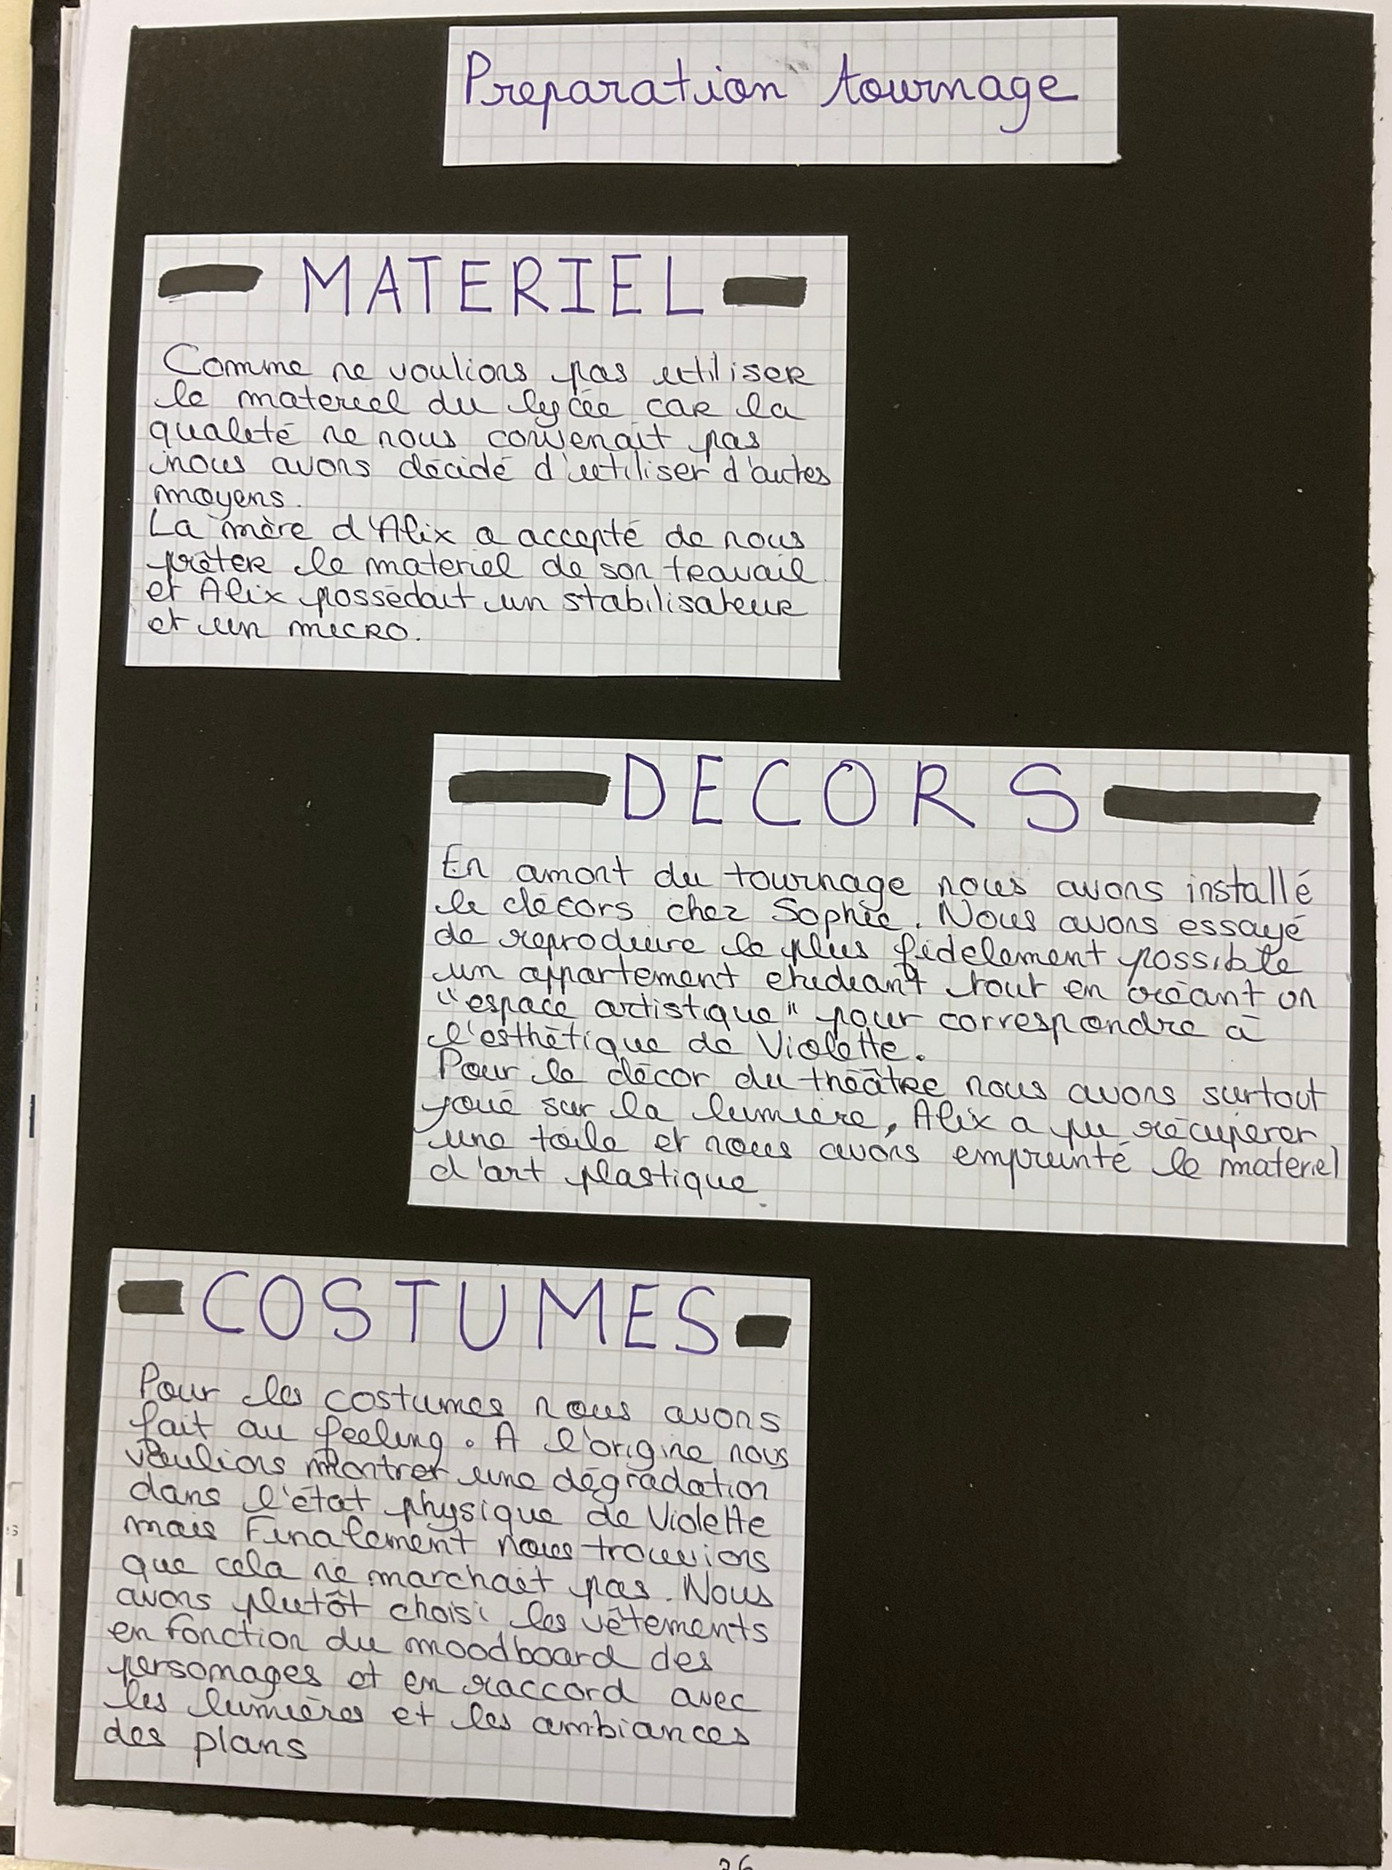 Preparation tournage
MATERIEL
Comme ne voulions pas utiliser
le materiel du lycée car la
qualité ne nous convenait pas
nous avons décidé d'utiliser d'autes
moyens.
La mère d'Alix a accepté de nous
prêter le materiel de son travail
et Alix possédait un stabilisateur
et un micro.
DECORS
En amont du tournage nous avons installé
le décors chez Sophie. Nous avons essayé
de reproduire le plus fidèlement possible
un appartement etudiant tout en créant un
"espace artistique" pour correspondre à
l'esthétique de Violette.
Pour le décor du théâtre nous avons surtout
joué sur la lumière, Alix a pu récuperer
une toile et nous avons emprunté le materiel
d'art plastique.
COSTUMES
Pour les costumes nous avons
fait au feeling. A l'origine nous
voulions montrer une dégradation
dans l'état physique de Violette
mais Finalement nous trouvions
que cela ne marchait pas. Nous
avons plutôt choisi les vêtements
en fonction du moodboard des
personages et en raccord avec
les lumières et les ambiances
des plans